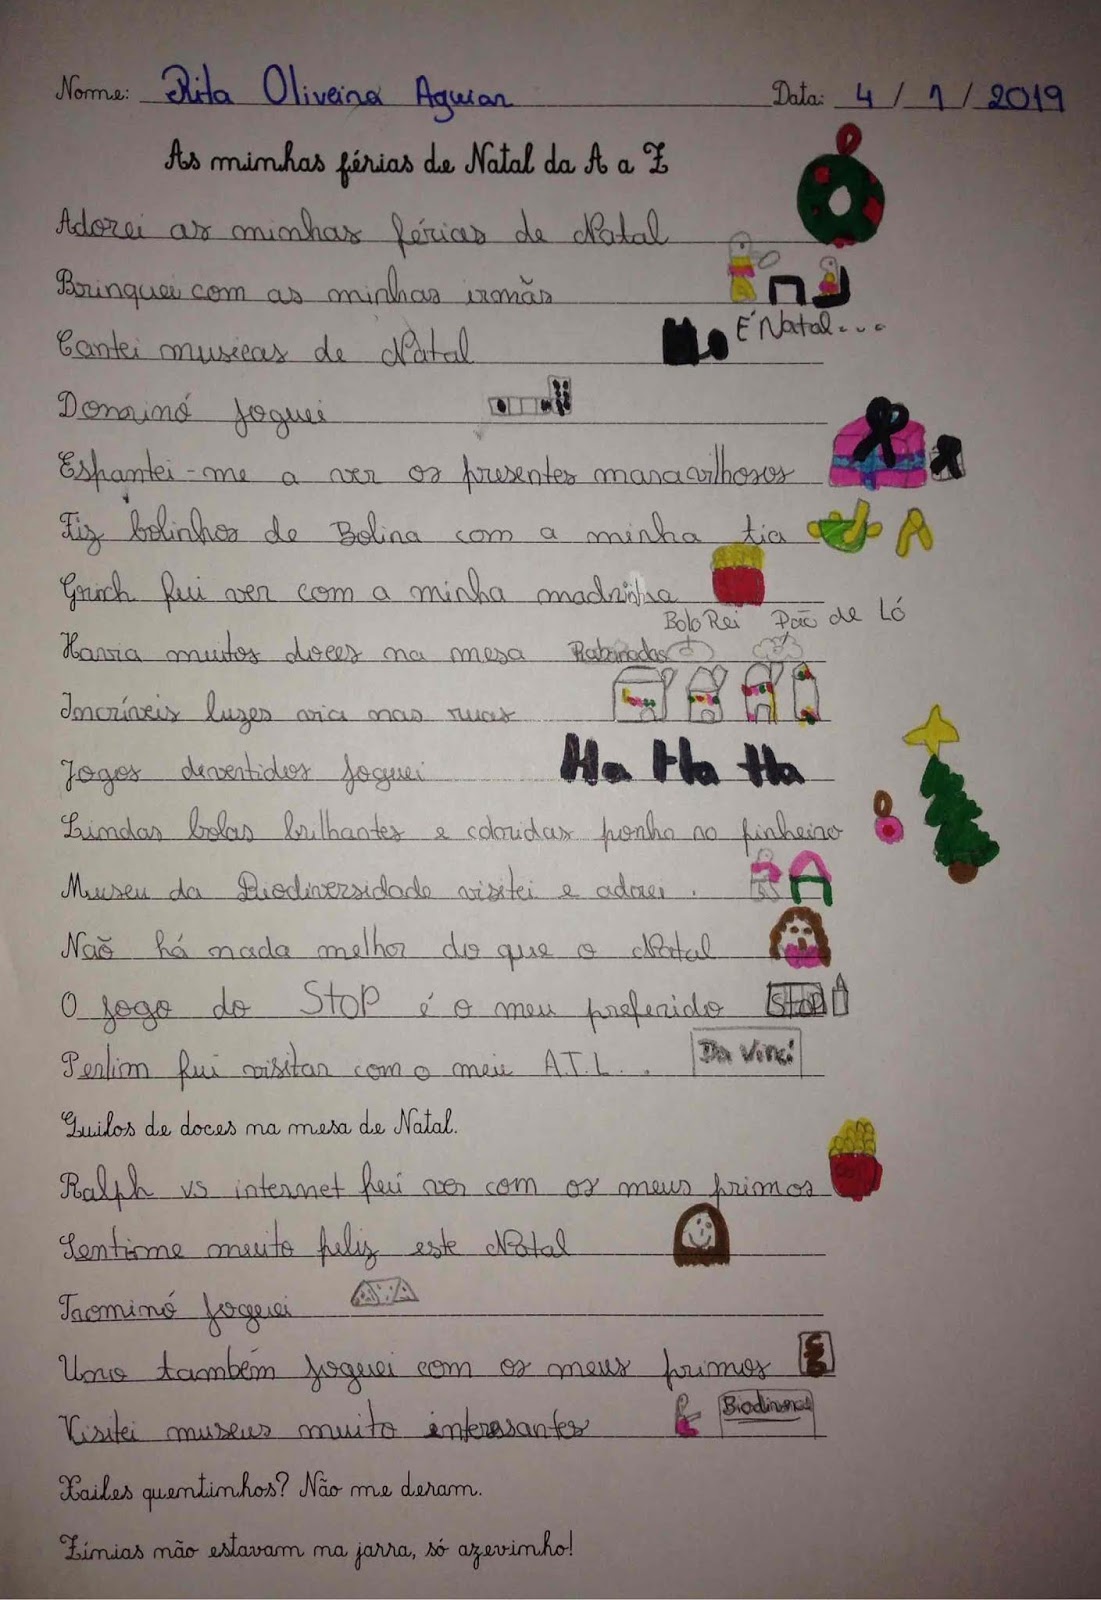 Nome: Rita Oliveira Aguiar Data: 4 / 1 / 2019
As minhas férias de Natal da A a Z
Adorei as minhas férias de Natal
Brinquei com as minhas irmãs
Cantei musicas de Natal É Natal...
Dominó joguei
Espantei-me a ver os presentes maravilhosos
Fiz bolinhos de Bolina com a minha tia
Grinch fui ver com a minha madrinha
Bolo Rei Pão de Ló
Havia muitos doces na mesa Rabanadas
Incríveis luzes via nas ruas
Jogos divertidos joguei Ha Ha Ha
Lindas bolas brilhantes e coloridas ponho no pinheiro
Museu da Biodiversidade visitei e adorei.
Não há nada melhor do que o Natal
O jogo do StoP é o meu preferido StoP
Perlim fui visitar com o meu A.T.L.. Da Vinci
Quilos de doces na mesa de Natal.
Ralph vs internet fui ver com os meus primos
Senti-me muito feliz este Natal
Trominó joguei
Uno também joguei com os meus primos
Visitei museus muito interesantes
Xailes quentinhos? Não me deram.
Zínias não estavam na jarra, só azevinho!